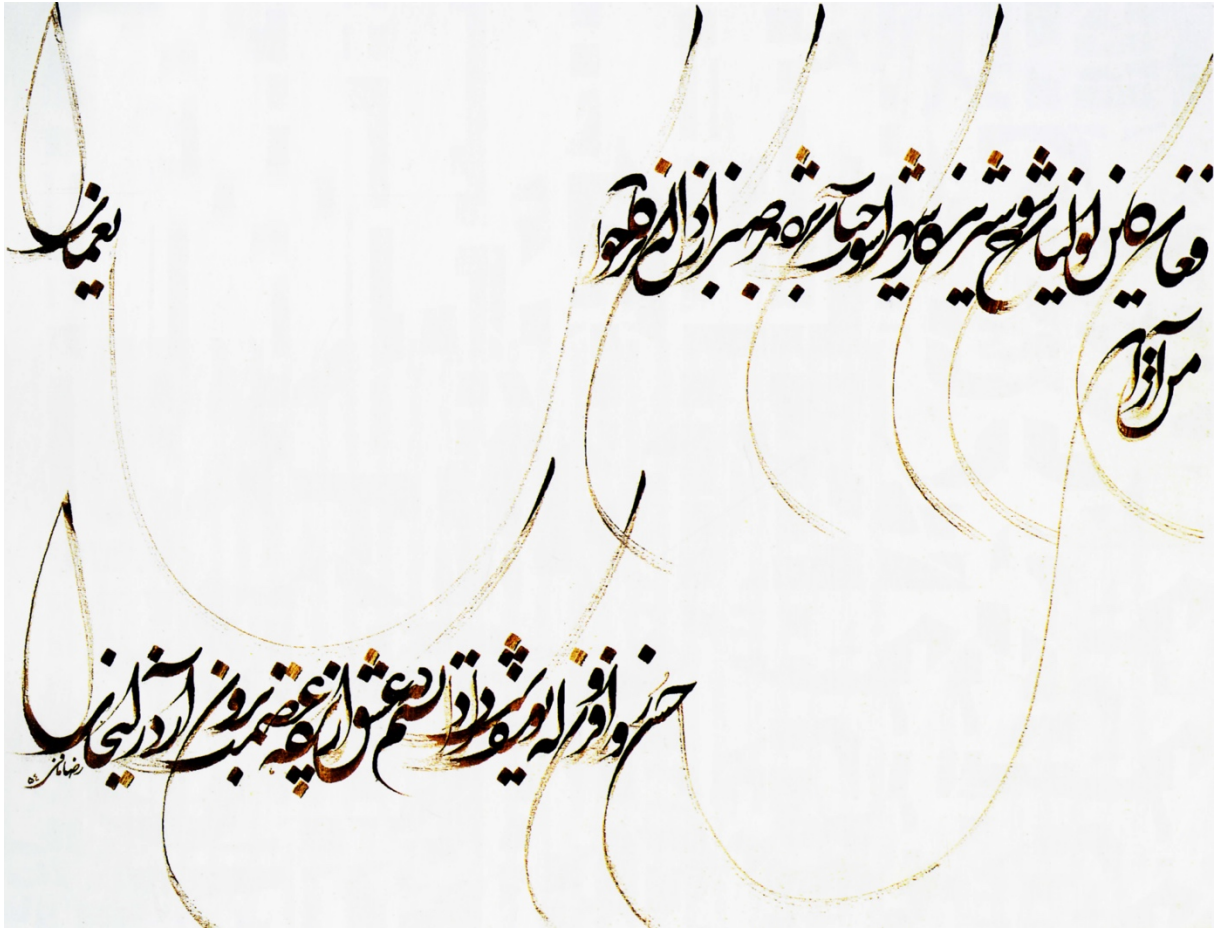 فغان کاین لولیان شوخ شیرین کار شهرآشوب چنان بردند صبر از دل که ترکان خوان یغما را
من از آن
حسن روزافزون که یوسف داشت دانستم که عشق از پرده عصمت برون آرد زلیخا را
رضا مافی ۵۱